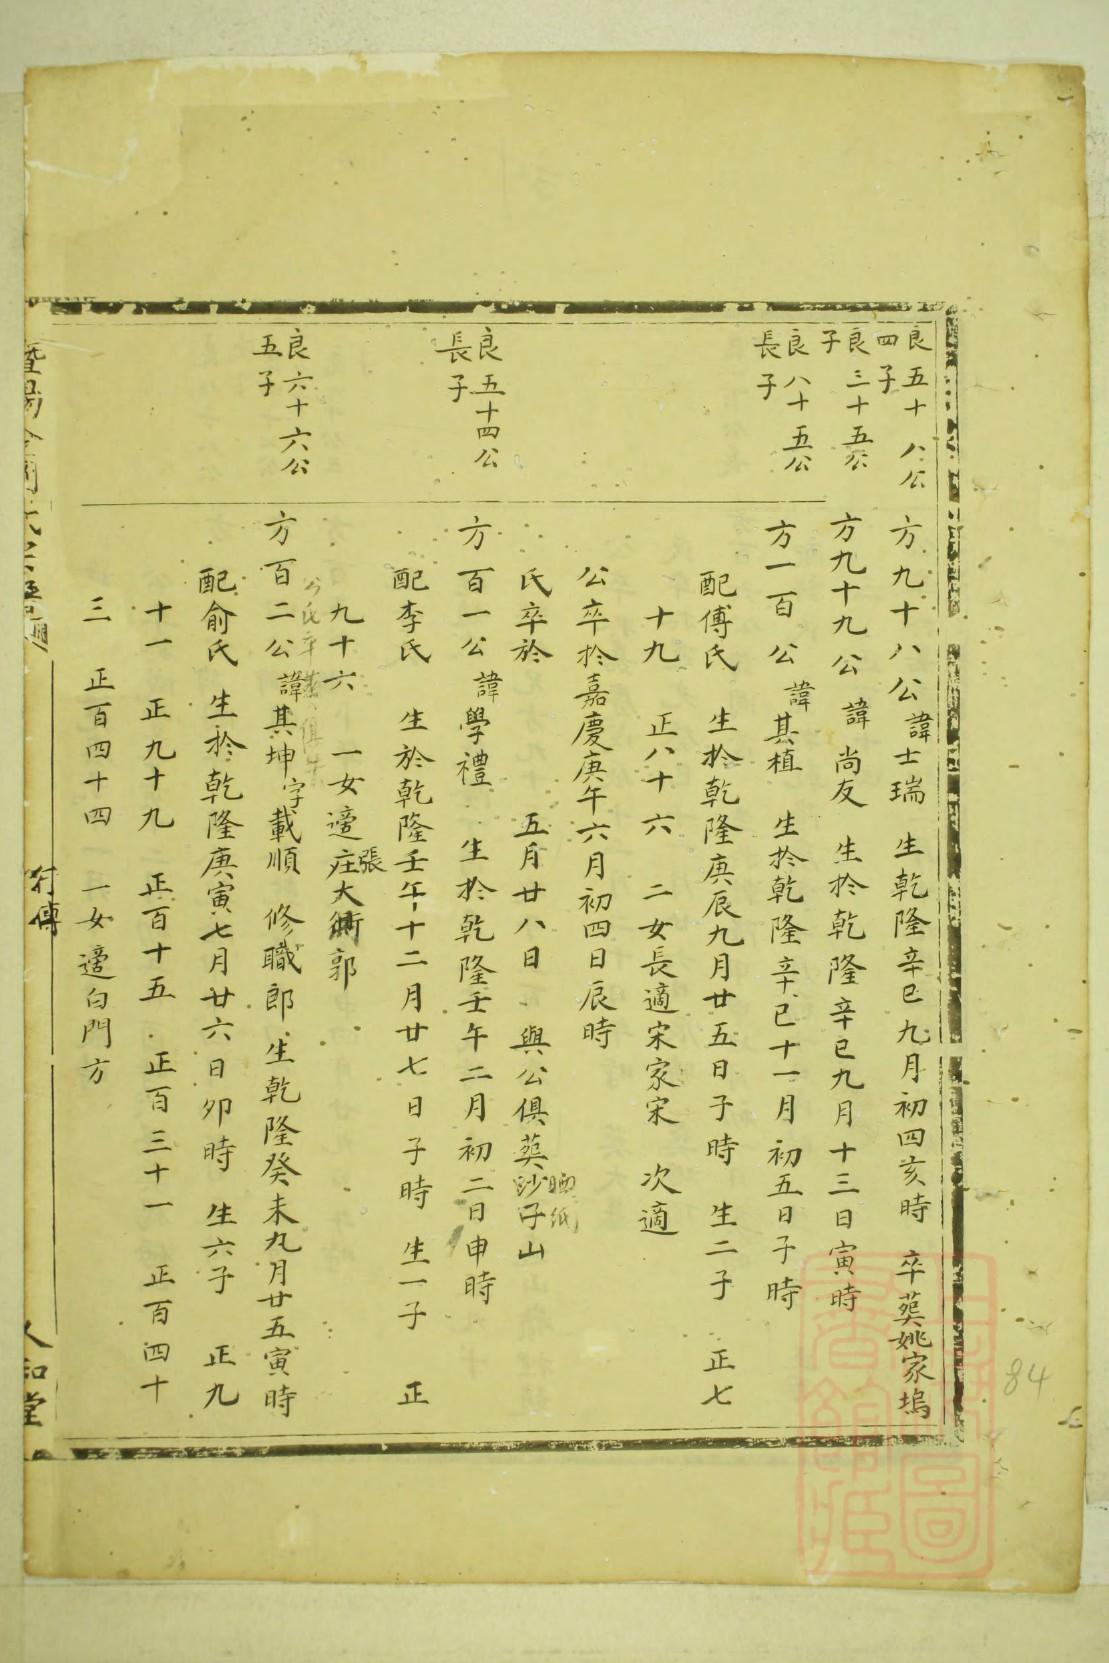 良五十八公
四子
方九十八公諱士瑞 生乾隆辛巳九月初四亥時 卒葬姚家塢
良三十五公
子
方九十九公諱尚友 生於乾隆辛巳九月十三日寅時
良八十五公
長子
方一百公諱其植 生於乾隆辛巳十一月初五日子時
配傅氏 生於乾隆庚辰九月廿五日子時 生二子 正七
十九 正八十六 二女長適宋家宋 次適
公卒於嘉慶庚午六月初四日辰時
氏卒於 五月廿八日 與公俱葬沙子山
良五十四公
長子
方百一公諱學禮 生於乾隆壬午二月初二日申時
配李氏 生於乾隆壬午十二月廿七日子時 生一子 正
九十六 一女適張大衕郭
良六十六公
五子
方百二公諱其坤字載順 修職郎 生乾隆癸未九月廿五寅時
配俞氏 生於乾隆庚寅七月廿六日卯時 生六子 正九
十一 正九十九 正百十五 正百三十一 正百四十
三 正百四十四 一女適白門方
行傳
人和堂
84